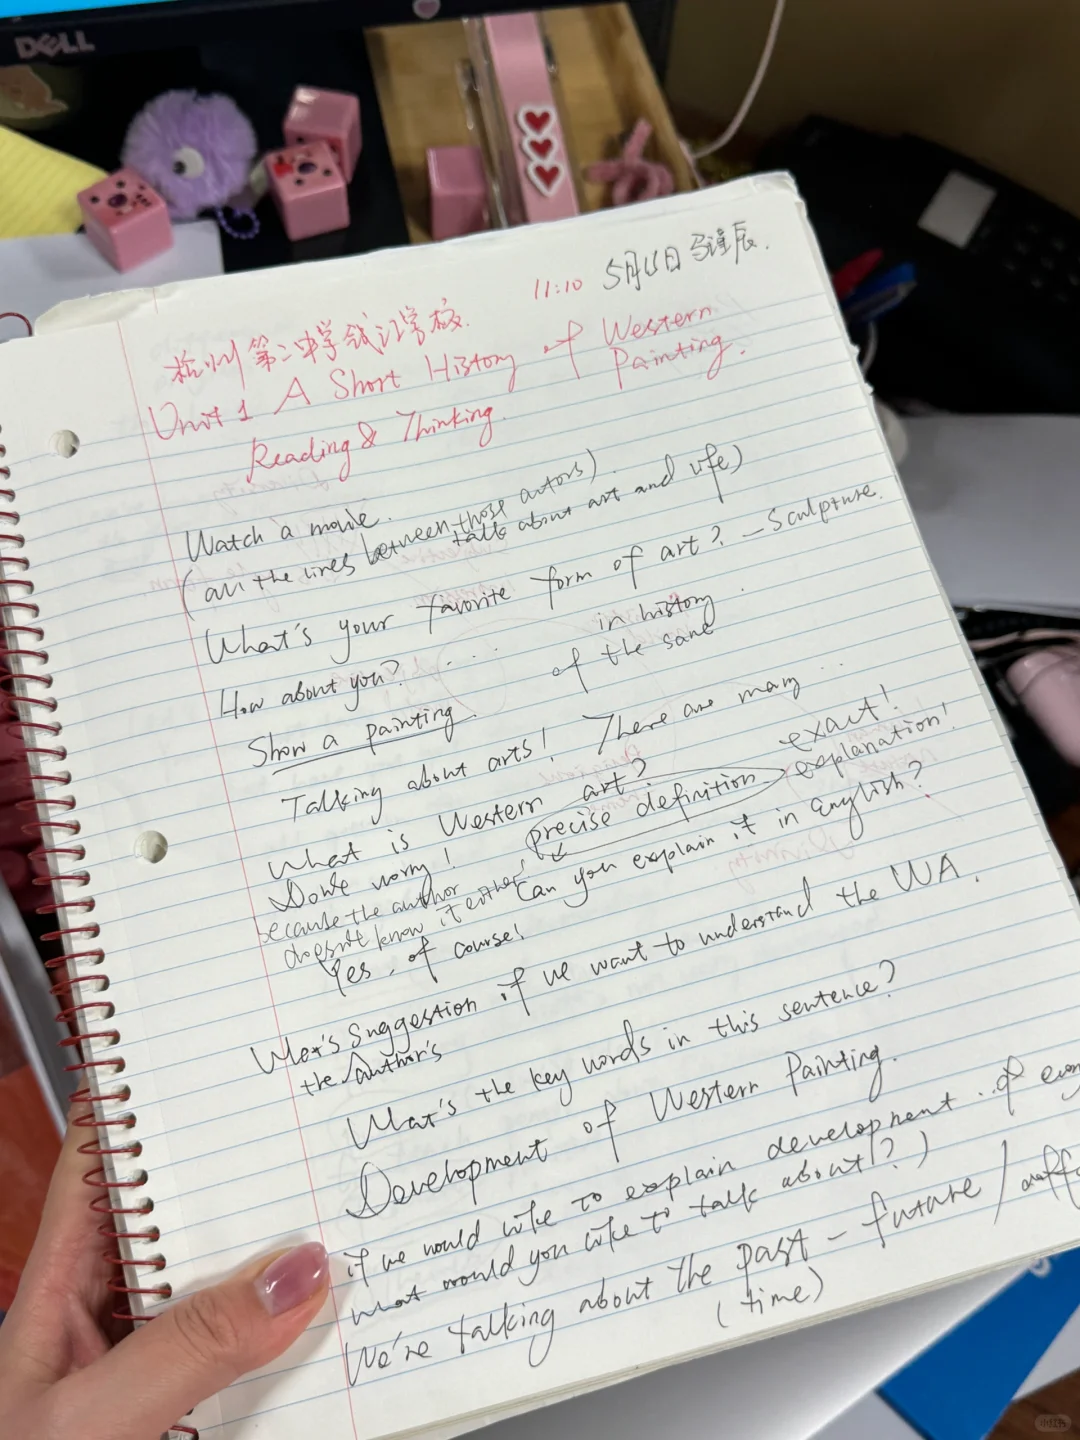 DELL
11:10 5月11日 马谨辰.
杭州第二中学钱江学校.
Unit 1 A Short History of Western Painting.
Reading & Thinking.
Watch a movie.
(all the lines between those actors)
talk about art and life)
What's your favorite form of art? — Sculpture.
How about you? .... in history
of the same
Show a painting.
Talking about arts! There are many ..
What is Western art? exact!
Don't worry! precise definition explanation!
ecause the author
doesn't know it either! Can you explain it in English?
Yes, of course!
Wer's Suggestion if we want to understand the WA.
the Author's
What's the key words in this sentence?
Development of Western Painting.
if we would like to explain development .. of
what would you like to talk about?)
We're talking about the past — future /
(time)
小红书